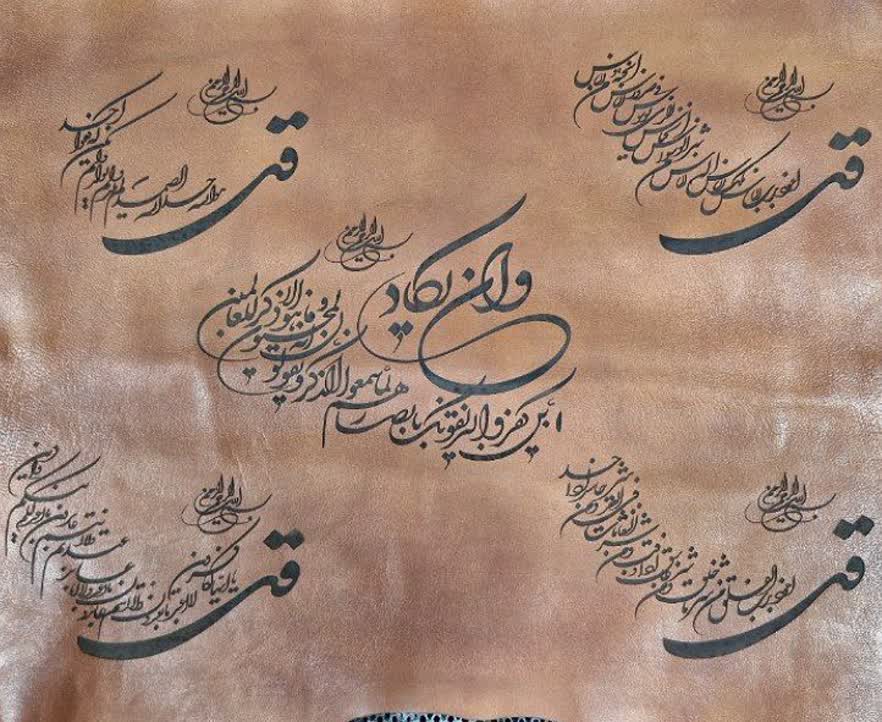 بسم الله الرحمن الرحیم
قل
اعوذ برب الناس ملک الناس اله الناس
من شر الوسواس الخناس
الذی یوسوس فی صدور الناس
من الجنة و الناس
بسم الله الرحمن الرحیم
قل
هو الله احد الله الصمد
لم یلد و لم یولد
و لم یکن
له کفوا احد
بسم الله الرحمن الرحیم
وان یکاد
الذین کفروا لیزلقونک بابصارهم
لما سمعوا الذکر و یقولون
انه لمجنون
و ما هو الا ذکر للعالمین
بسم الله الرحمن الرحیم
قل
اعوذ برب الفلق من شر ما خلق
و من شر غاسق اذا وقب
و من شر النفاثات فی العقد
و من شر حاسد اذا حسد
بسم الله الرحمن الرحیم
قل
یا ایها الکافرون
لا اعبد ما تعبدون و لا انتم عابدون
ما اعبد و لا انا عابد
ما عبدتم
و لا انتم عابدون ما اعبد
لکم دینکم
ولی دین